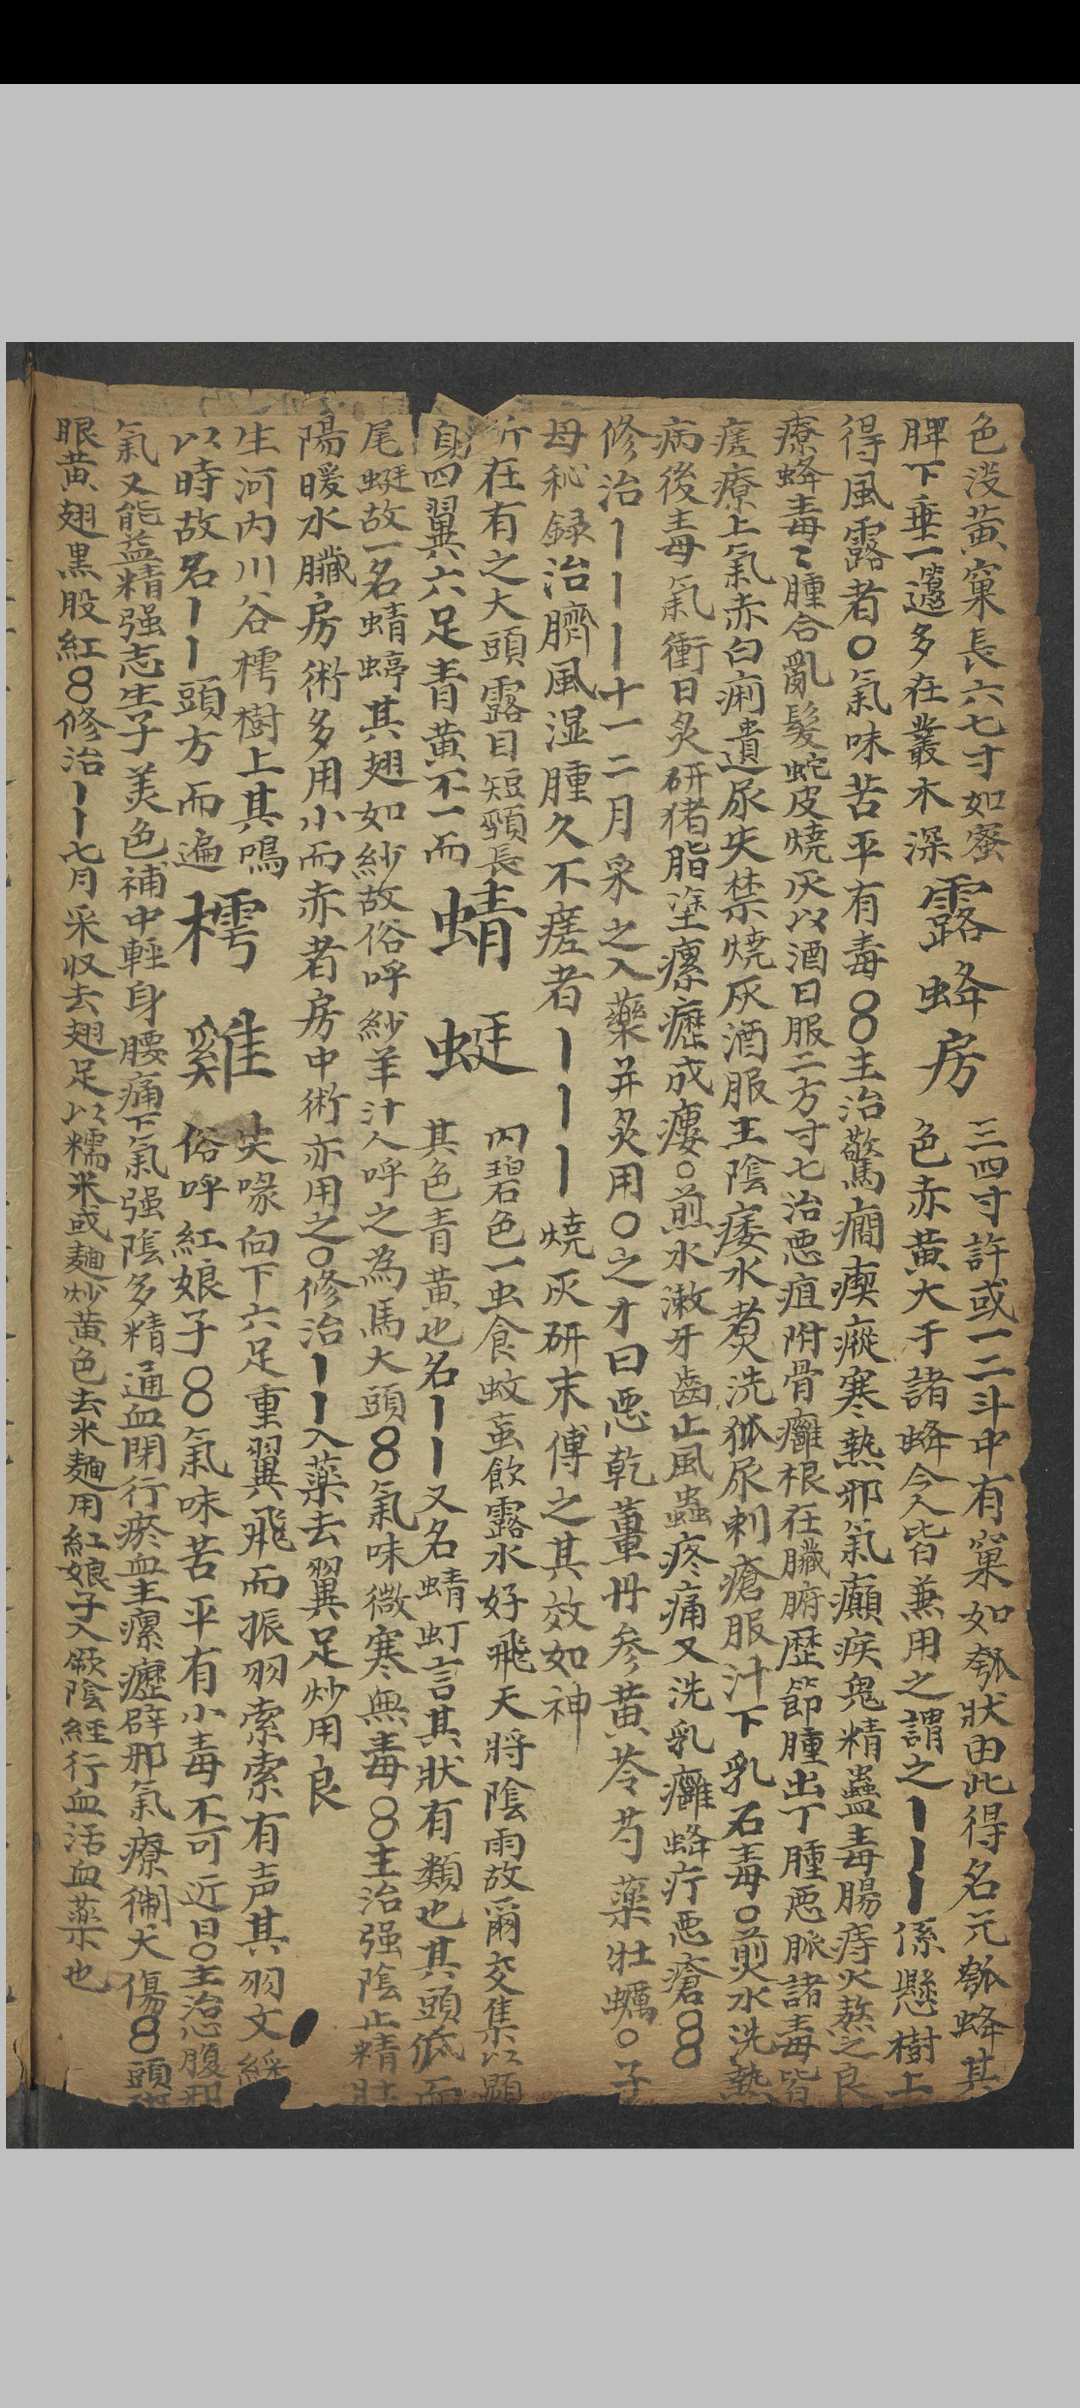 色淡黃窠長六七寸如蜜
脾下垂一邊多在叢木深
露蜂房
三四寸許或一二斗中有窠如瓠狀由此得名元瓠蜂其
色赤黃大于諸蜂今人皆兼用之謂之丨丨丨係懸樹上
得風露者〇氣味苦平有毒〇〇主治驚癎瘈瘲寒熱邪氣癲疾鬼精蠱毒腸痔火熬之良
療蜂毒〻腫合亂髮蛇皮燒灰以酒日服二方寸七治惡疽附骨癰根在臟腑歷節腫出丁腫惡脈諸毒皆
瘥療上氣赤白痢遺尿失禁燒灰酒服主陰痿水煑洗狐尿刺瘡服汁下乳石毒〇煎水洗熱
病後毒氣衝目炙研猪脂塗瘰癧成瘻〇煎水漱牙齒止風蟲疼痛又洗乳癰蜂疔惡瘡〇〇
修治丨丨丨十一二月采之入藥并炙用〇之才曰惡乾薑丹参黃芩芍藥牡蠣〇子
母秘録治臍風湿腫久不瘥者丨丨丨燒灰研末傅之其效如神
在有之大頭露目短頸長
身四翼六足青黃不一而
蜻蜓
內碧色一虫食蚊䖟飲露水好飛天將陰雨故爾交集以顯
其色青黃也名丨丨又名蜻虰言其狀有類也其頭低而
尾蜓故一名蜻蝏其翅如紗故俗呼紗羊汁人呼之為馬大頭〇〇氣味微寒無毒〇〇主治强陰止精壮
陽暖水臟房術多用小而赤者房中術亦用之〇修治丨丨入藥去翼足炒用良
生河內川谷樗樹上其鳴
以時故名丨丨頭方而遍
樗雞
尖喙向下六足重翼飛而振羽索索有声其羽文綵
俗呼紅娘子〇〇氣味苦平有小毒不可近目〇主治腹邪
氣又能益精强志生子美色補中輕身腰痛下氣强陰多精通血閉行瘀血主瘰癧辟邪氣療猘犬傷〇〇頭
眼黃翅黑股紅〇〇修治丨丨七月采收去翅足以糯米或麺炒黃色去米麺用紅娘子入厥陰経行血活血藥也